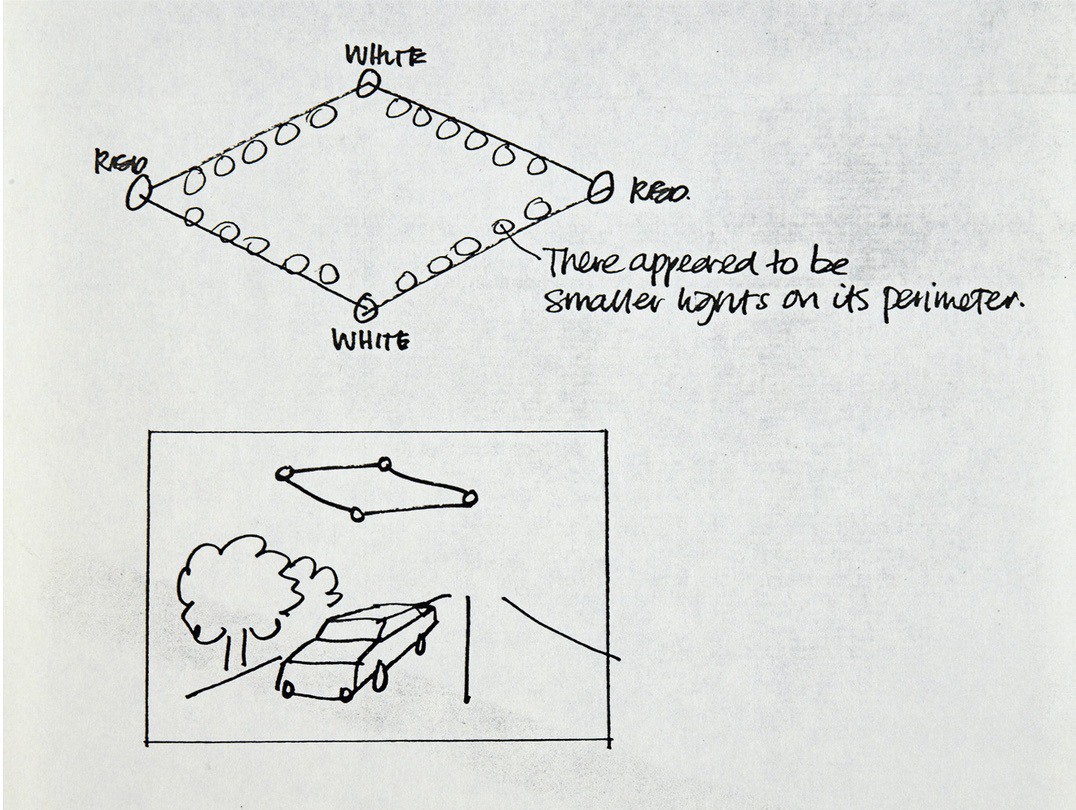 WHITE
RED
RED.
There appeared to be
smaller lights on its perimeter.
WHITE